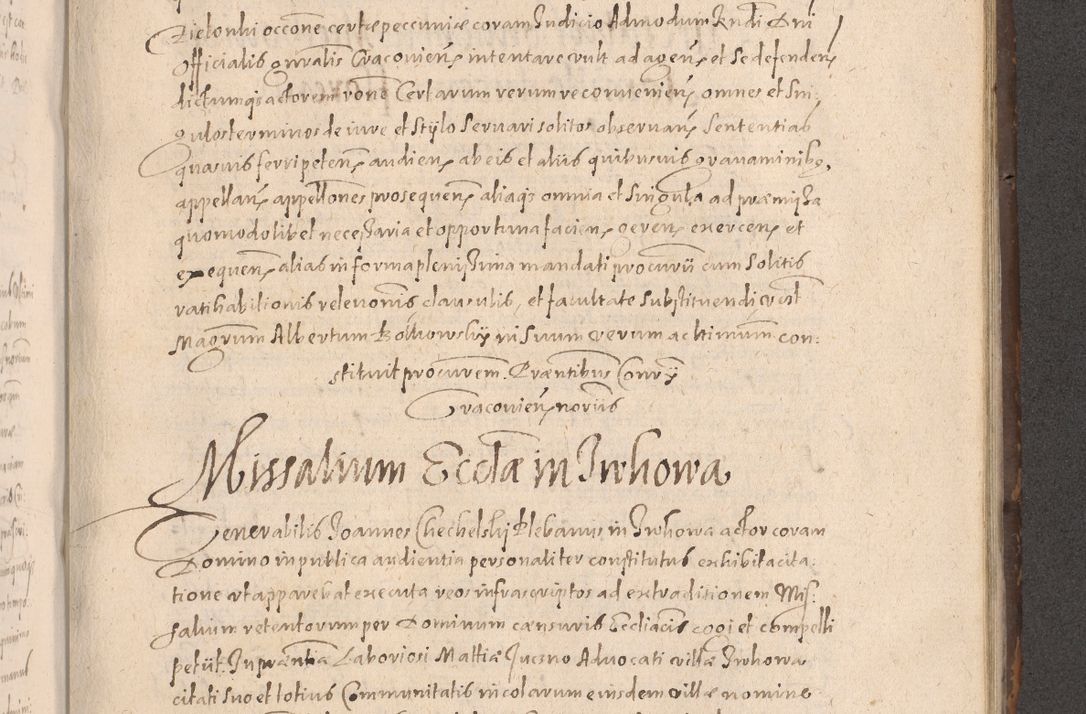 Zictonhi occōne certæ peccuniæ coram Judicio Admodum Rndi Dni
Officialis gnralis Cracovien̄ intentare vult ad agen̄ et se defenden̄
dictumqȝ actorem rōne Certarum rerum reconvenien̄ omnes et Sin:
gulos terminos de iure et Stÿlo Servari solitos observan̄ Sententias
quasvis ferri peten̄ audien̄ ab eis et aliis quibusvis gravaminibȝ
appellan̄ appellōnes prosequen̄ aliaqȝ omnia et Singula ad præmissa
quomodolibet necessaria et opportuna facien̄ geren̄ exercen̄ et
exequen̄ alias in forma plenissima mandati procurii cum Solitis
ratihabitionis relevonis clausulis, et facultate Substituendi
Magrum Albertum in Suum verum ac ltimum con:
stituit procurem. Præntibus Conrÿ
Cracovien̄ noriis
Missalium Ecclæ in Inhowa
Venerabilis Joannes Chechelskÿ Plebanus in Inhowa actor coram
Domino in publica audientia personaliter constitutus exhibita cita:
tione ut apparebat executa reos infrascriptos ad extraditionem Mis:
salium retentorum per Dominum censuris Eccliacis cogi et compelli
petiit. In præntia Laboriosi Mattiæ Advocati villæ Inhowa
citati suo et totius Communitatis incolarum eiusdem villæ nomine